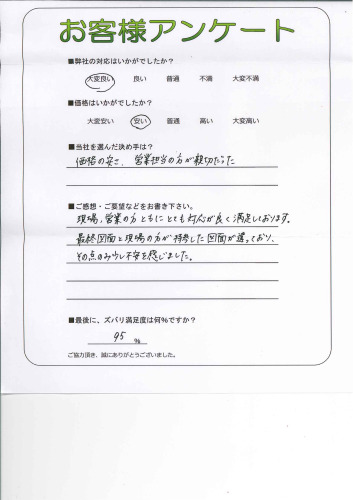 お客様アンケート
■弊社の対応はいかがでしたか?
大変良い 良い 普通 不満 大変不満
■価格はいかがでしたか?
大変安い 安い 普通 高い 大変高い
■当社を選んだ決め手は?
価格の安さ、営業担当の方が親切だった
■ご感想・ご要望などをお書き下さい。
現場、営業の方ともにとても対応が良く満足しております。
最終図面と現場の方が持参した図面が違っており、
その点のみ少し不安を感じました。
■最後に、ズバリ満足度は何%ですか?
95 %
ご協力頂き、誠にありがとうございました。